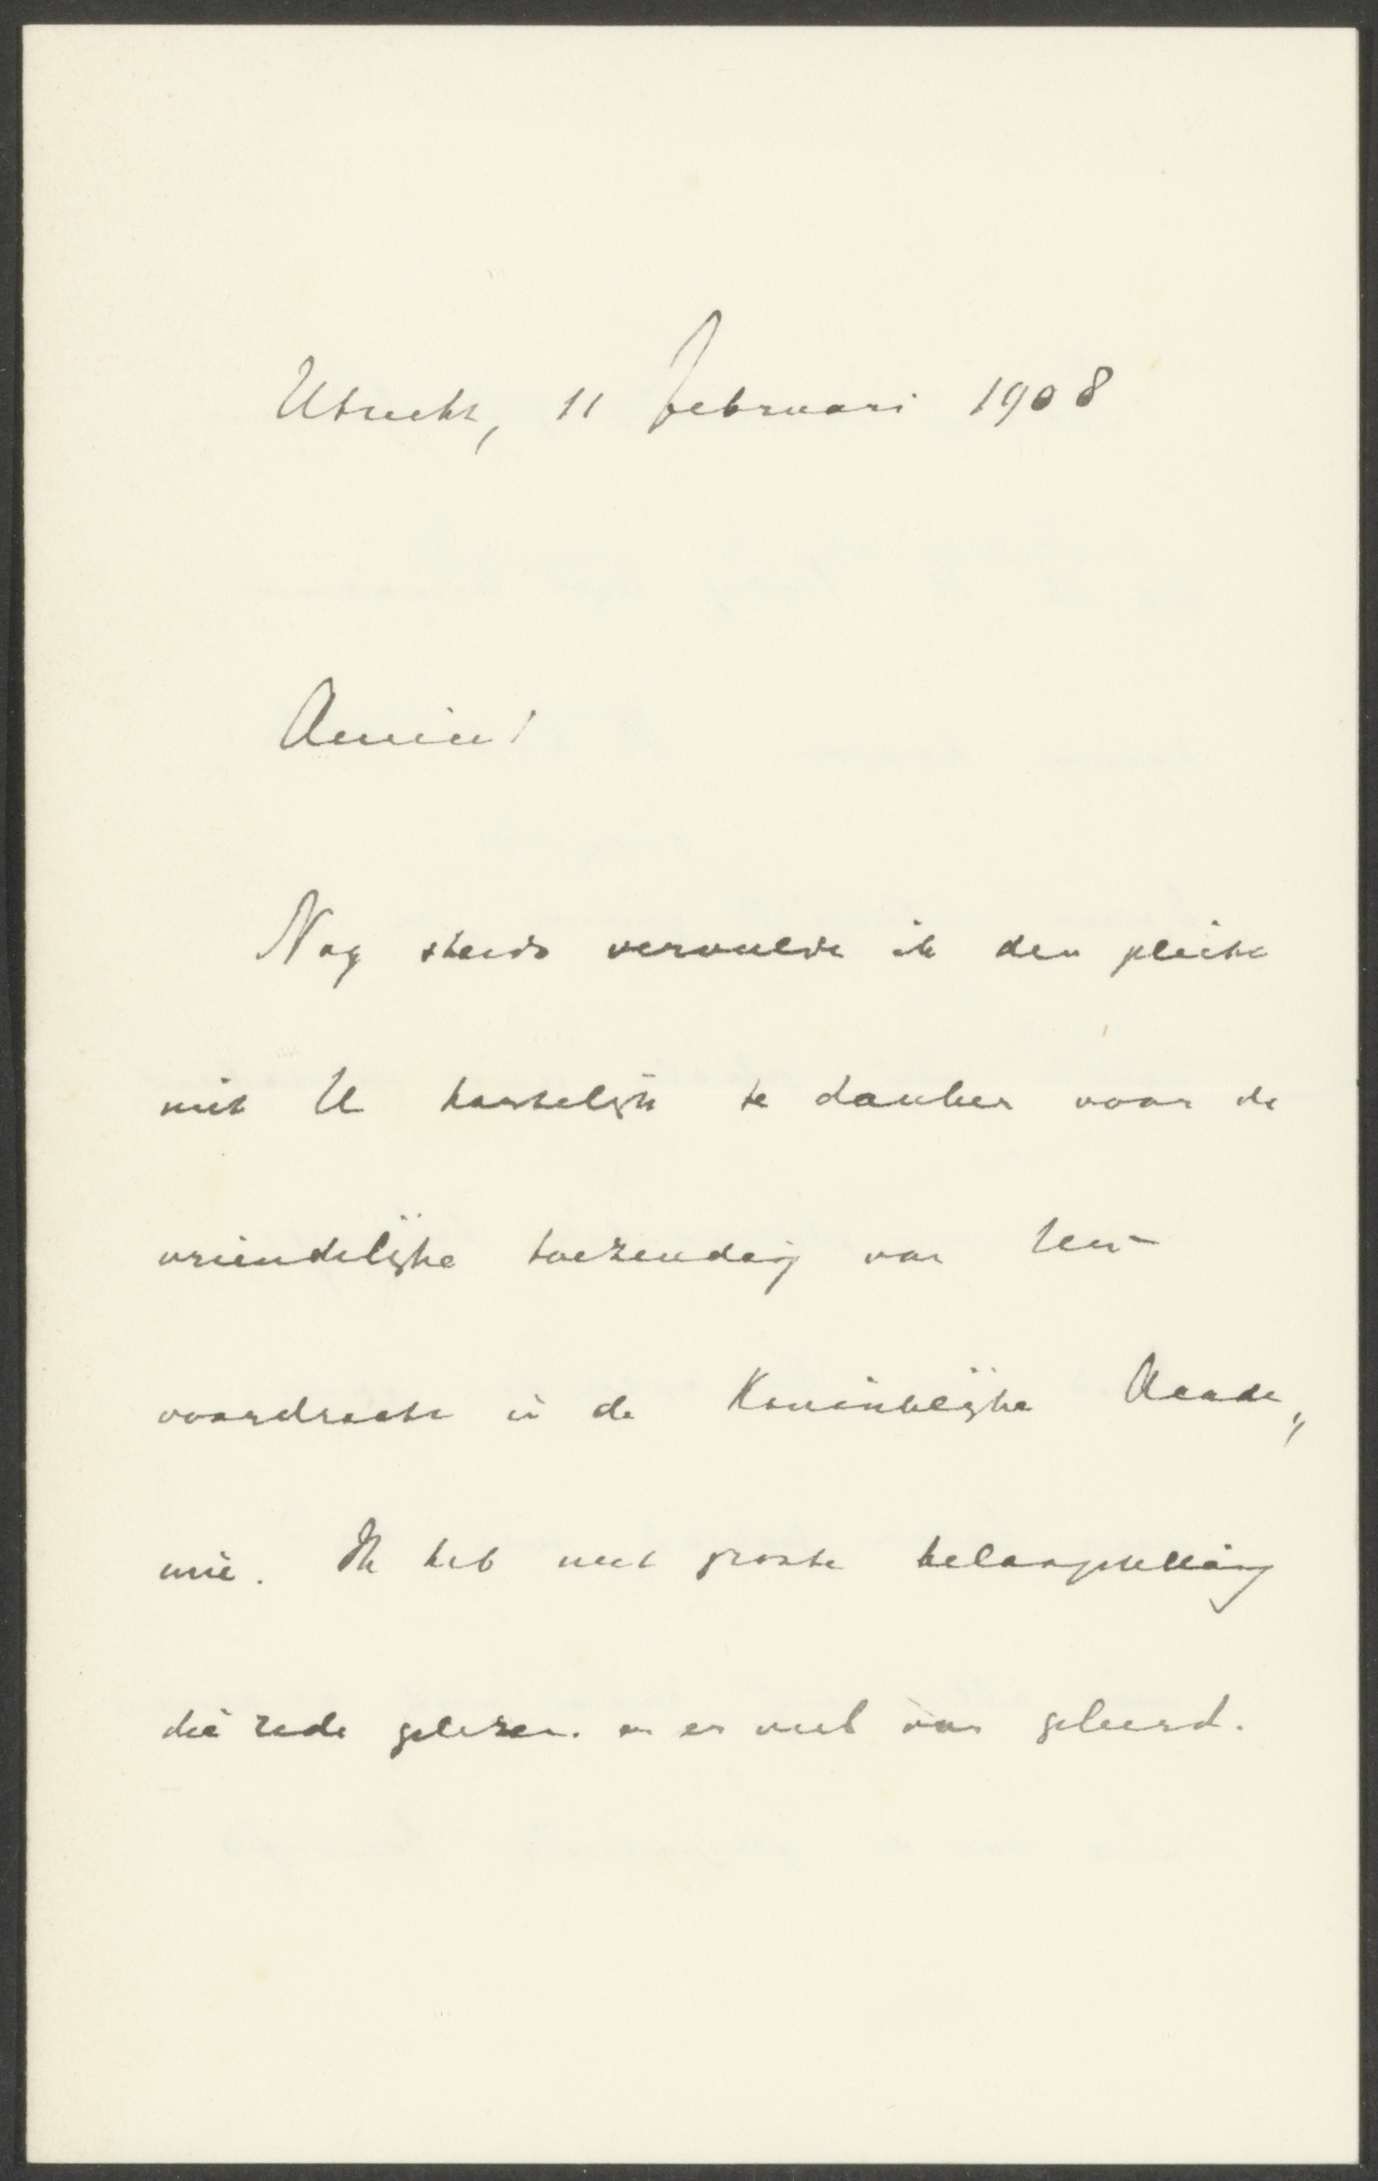 Utrecht, 11 februari 1908
Amice!
Nog steeds vervulde ik den plicht
niet U hartelijk te danken voor de
vriendelijke toezending van Uw
voordracht in de Koninklijke Acade„
mie. Ik heb met groote belangstelling
die rede gelezen en er veel van geleerd.